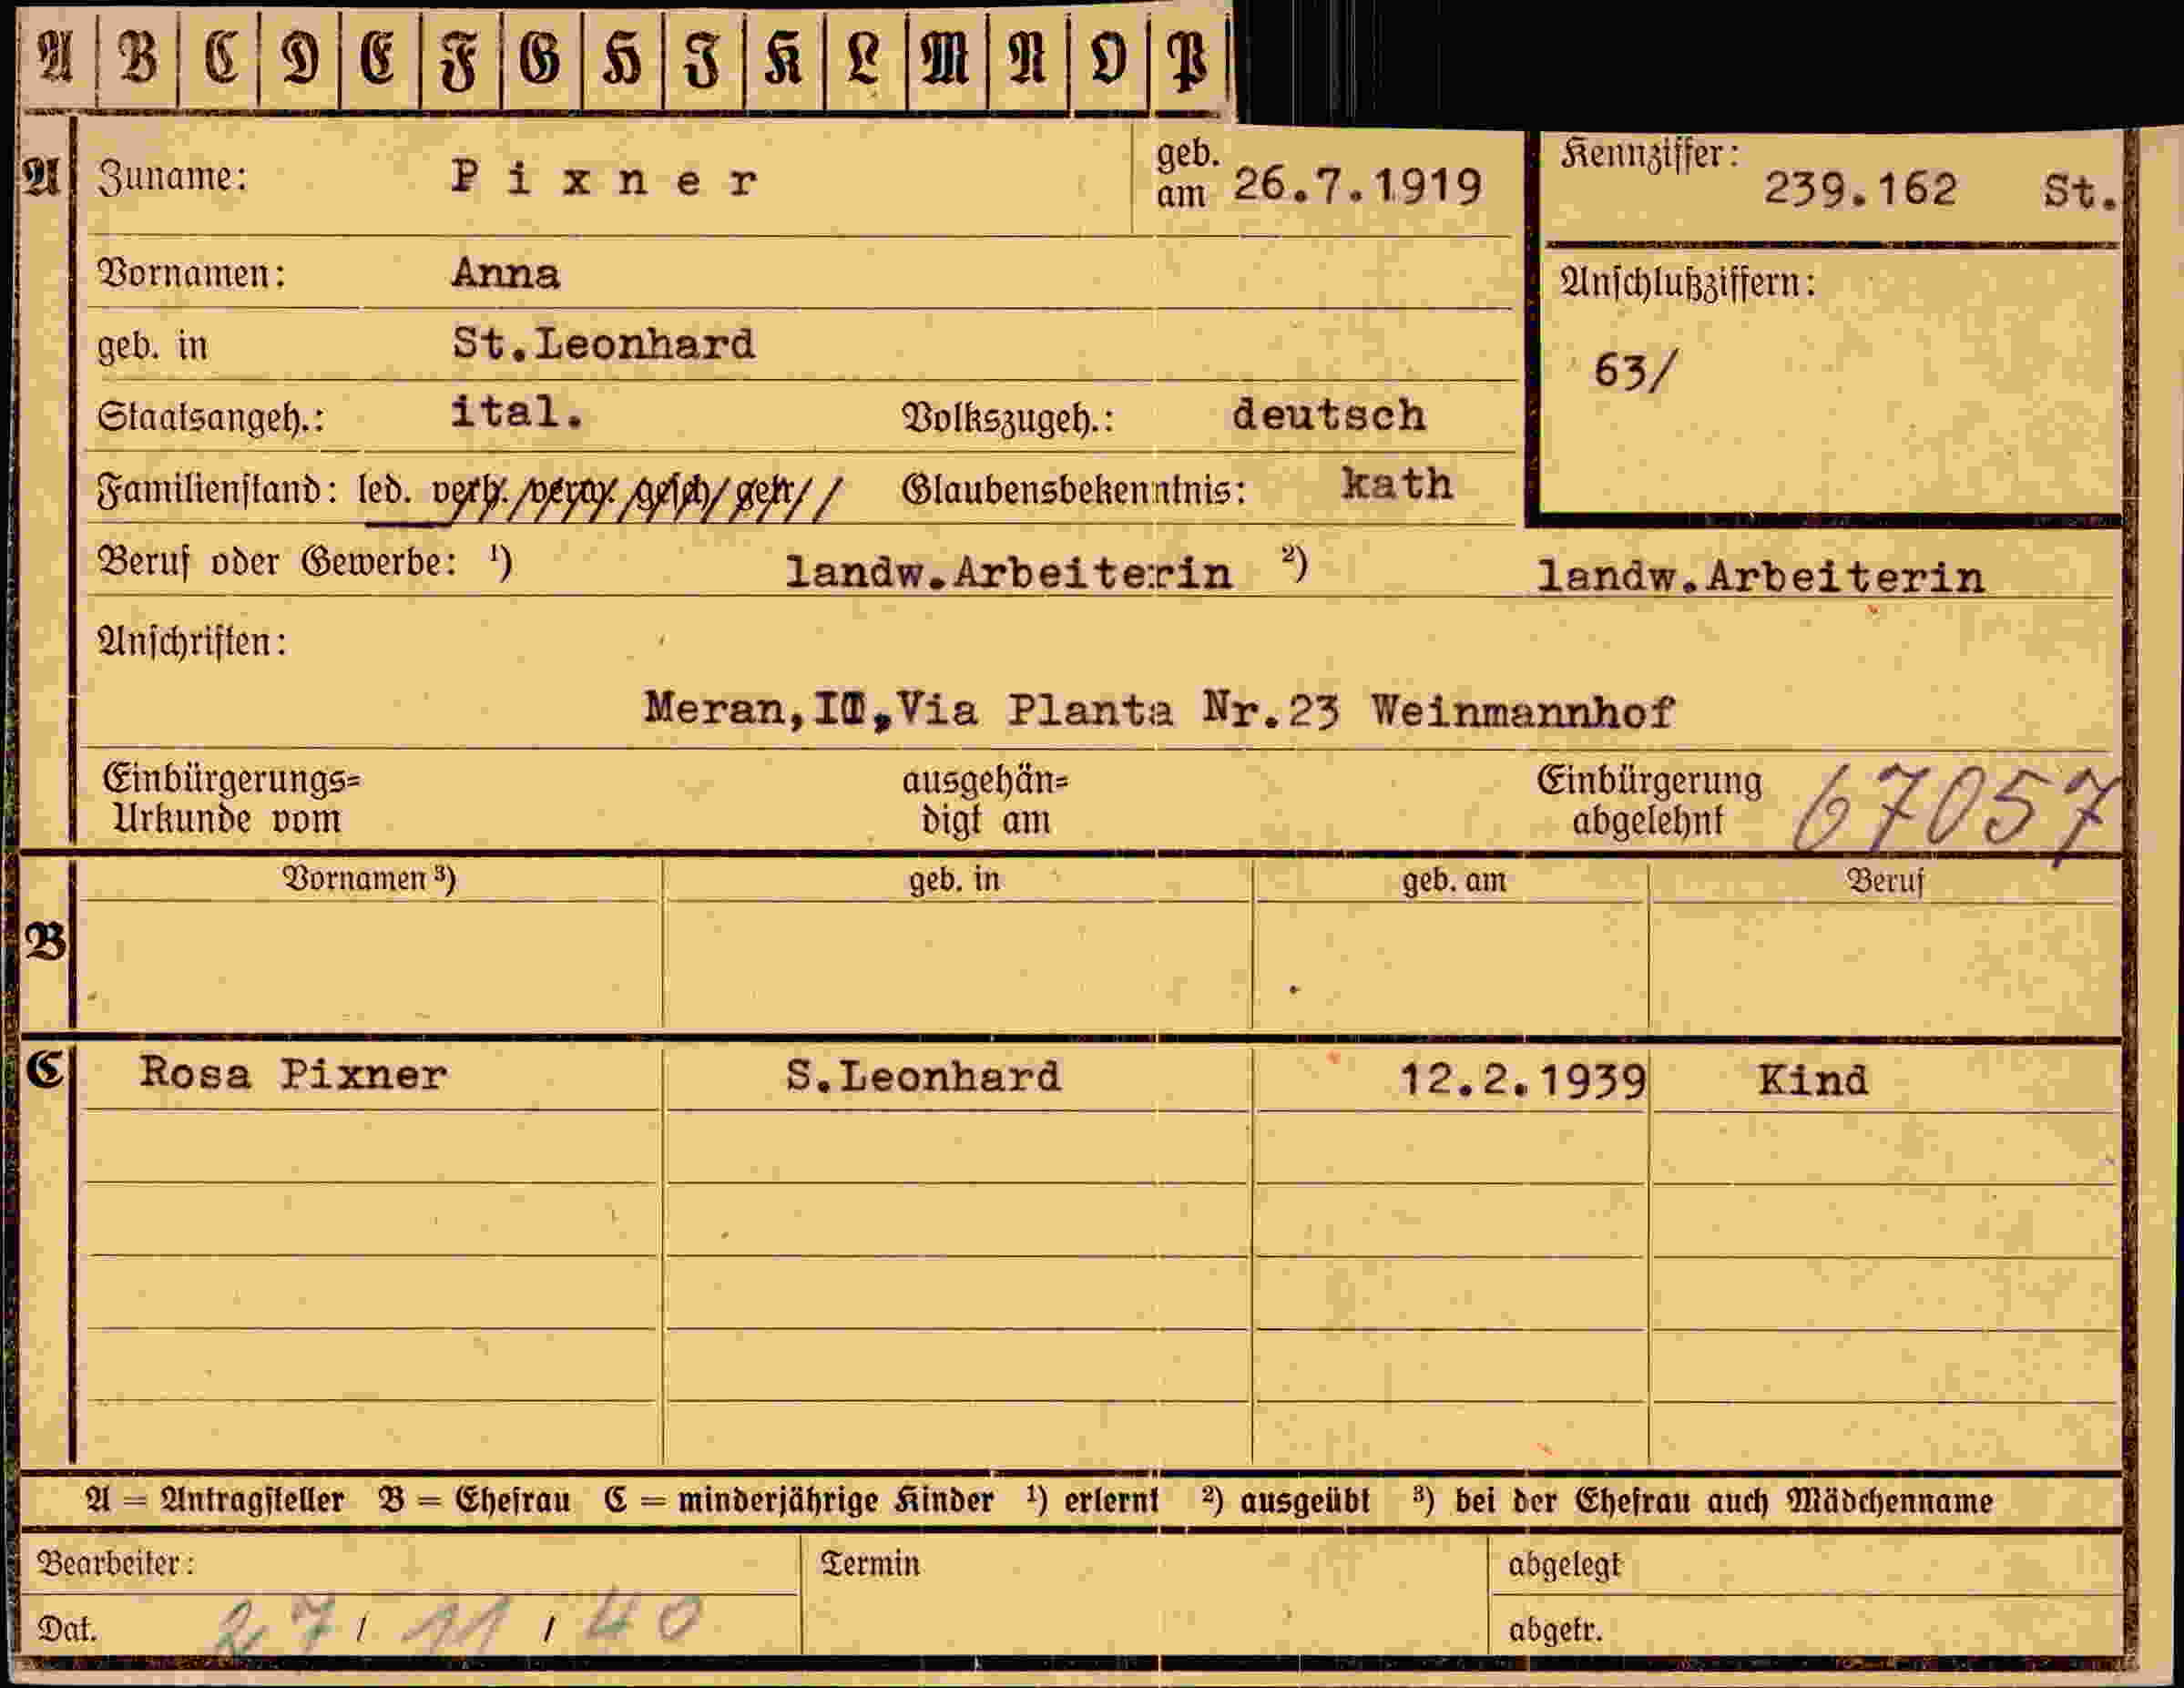 A B C D E F G H I K L M N O P
A Zuname: Pixner geb. am 26.7.1919 Kennziffer: 239.162 St.
Vornamen: Anna Anschlußziffern:
geb. in St.Leonhard 63/
Staatsangeh.: ital. Volkszugeh.: deutsch
Familienstand: led. verh. verw. gesch. getr. Glaubensbekenntnis: kath
Beruf oder Gewerbe: ¹) landw.Arbeiterin ²) landw.Arbeiterin
Anschriften:
Meran, Via Planta Nr.23 Weinmannhof
Einbürgerungs= ausgehän= Einbürgerung 67057
Urkunde vom digt am abgelehnt
Vornamen ³) geb. in geb. am Beruf
B
C Rosa Pixner S.Leonhard 12.2.1939 Kind
A = Antragsteller B = Ehefrau C = minderjährige Kinder ¹) erlernt ²) ausgeübt ³) bei der Ehefrau auch Mädchenname
Bearbeiter: Termin abgelegt
Dat. 27/11/40 abgetr.